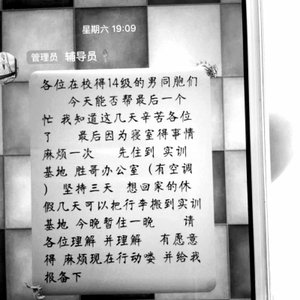 星期六 19:09
管理员 辅导员
各位在校得14级的男同胞们
今天能否帮最后一个
忙 我知道这几天辛苦各位
了 最后因为寝室得事情
麻烦一次 先住到 实训
基地 胜哥办公室（有空调
） 坚持三天 想回家的休
假几天可以把行李搬到实训
基地 今晚暂住一晚 请
各位理解 并理解 有愿意
得 麻烦现在行动喽 并给我
报备下